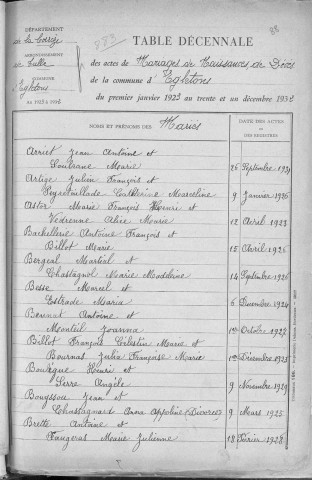 DÉPARTEMENT
de la Corrèze
ARRONDISSEMENT
de Tulle
COMMUNE
d'Egletons
88
TABLE DÉCENNALE
des actes de Mariages de Naissances, de Décès
de la commune d'Egletons
du premier janvier 1923 au trente et un décembre 1932
NOMS ET PRÉNOMS DES Mariés
DATE DES ACTES
ET
DES REGISTRES
Arriet Jean Antoine et
Soubrane Marie
26 Septembre 1931
Artige Julien François et
Peyretaillade Catherine Marceline
9 Janvier 1926
Astor Marie François Henri et
Védrenne Alice Marie
12 Avril 1928
Bachellerie Antoine François et
Billot Marie
15 Avril 1926
Bergeal Martial et
Chastagnol Marie Madeleine
14 Septembre 1926
Besse Marcel et
Estrade Maria
6 Décembre 1924
Bennat Antoine et
Monteil Joanna
1er Octobre 1927
Billot François Célestin Marie et
Bournas Julia Françoise Marie
1er Décembre 1925
Boulègue Henri et
Serre Angèle
9 Novembre 1929
Bouyssou Jean et
Chassagnard Anna Appoline (Divorcés)
9 Mars 1925
Brette Antoine et
Faugeras Marie Julienne
18 Février 1928